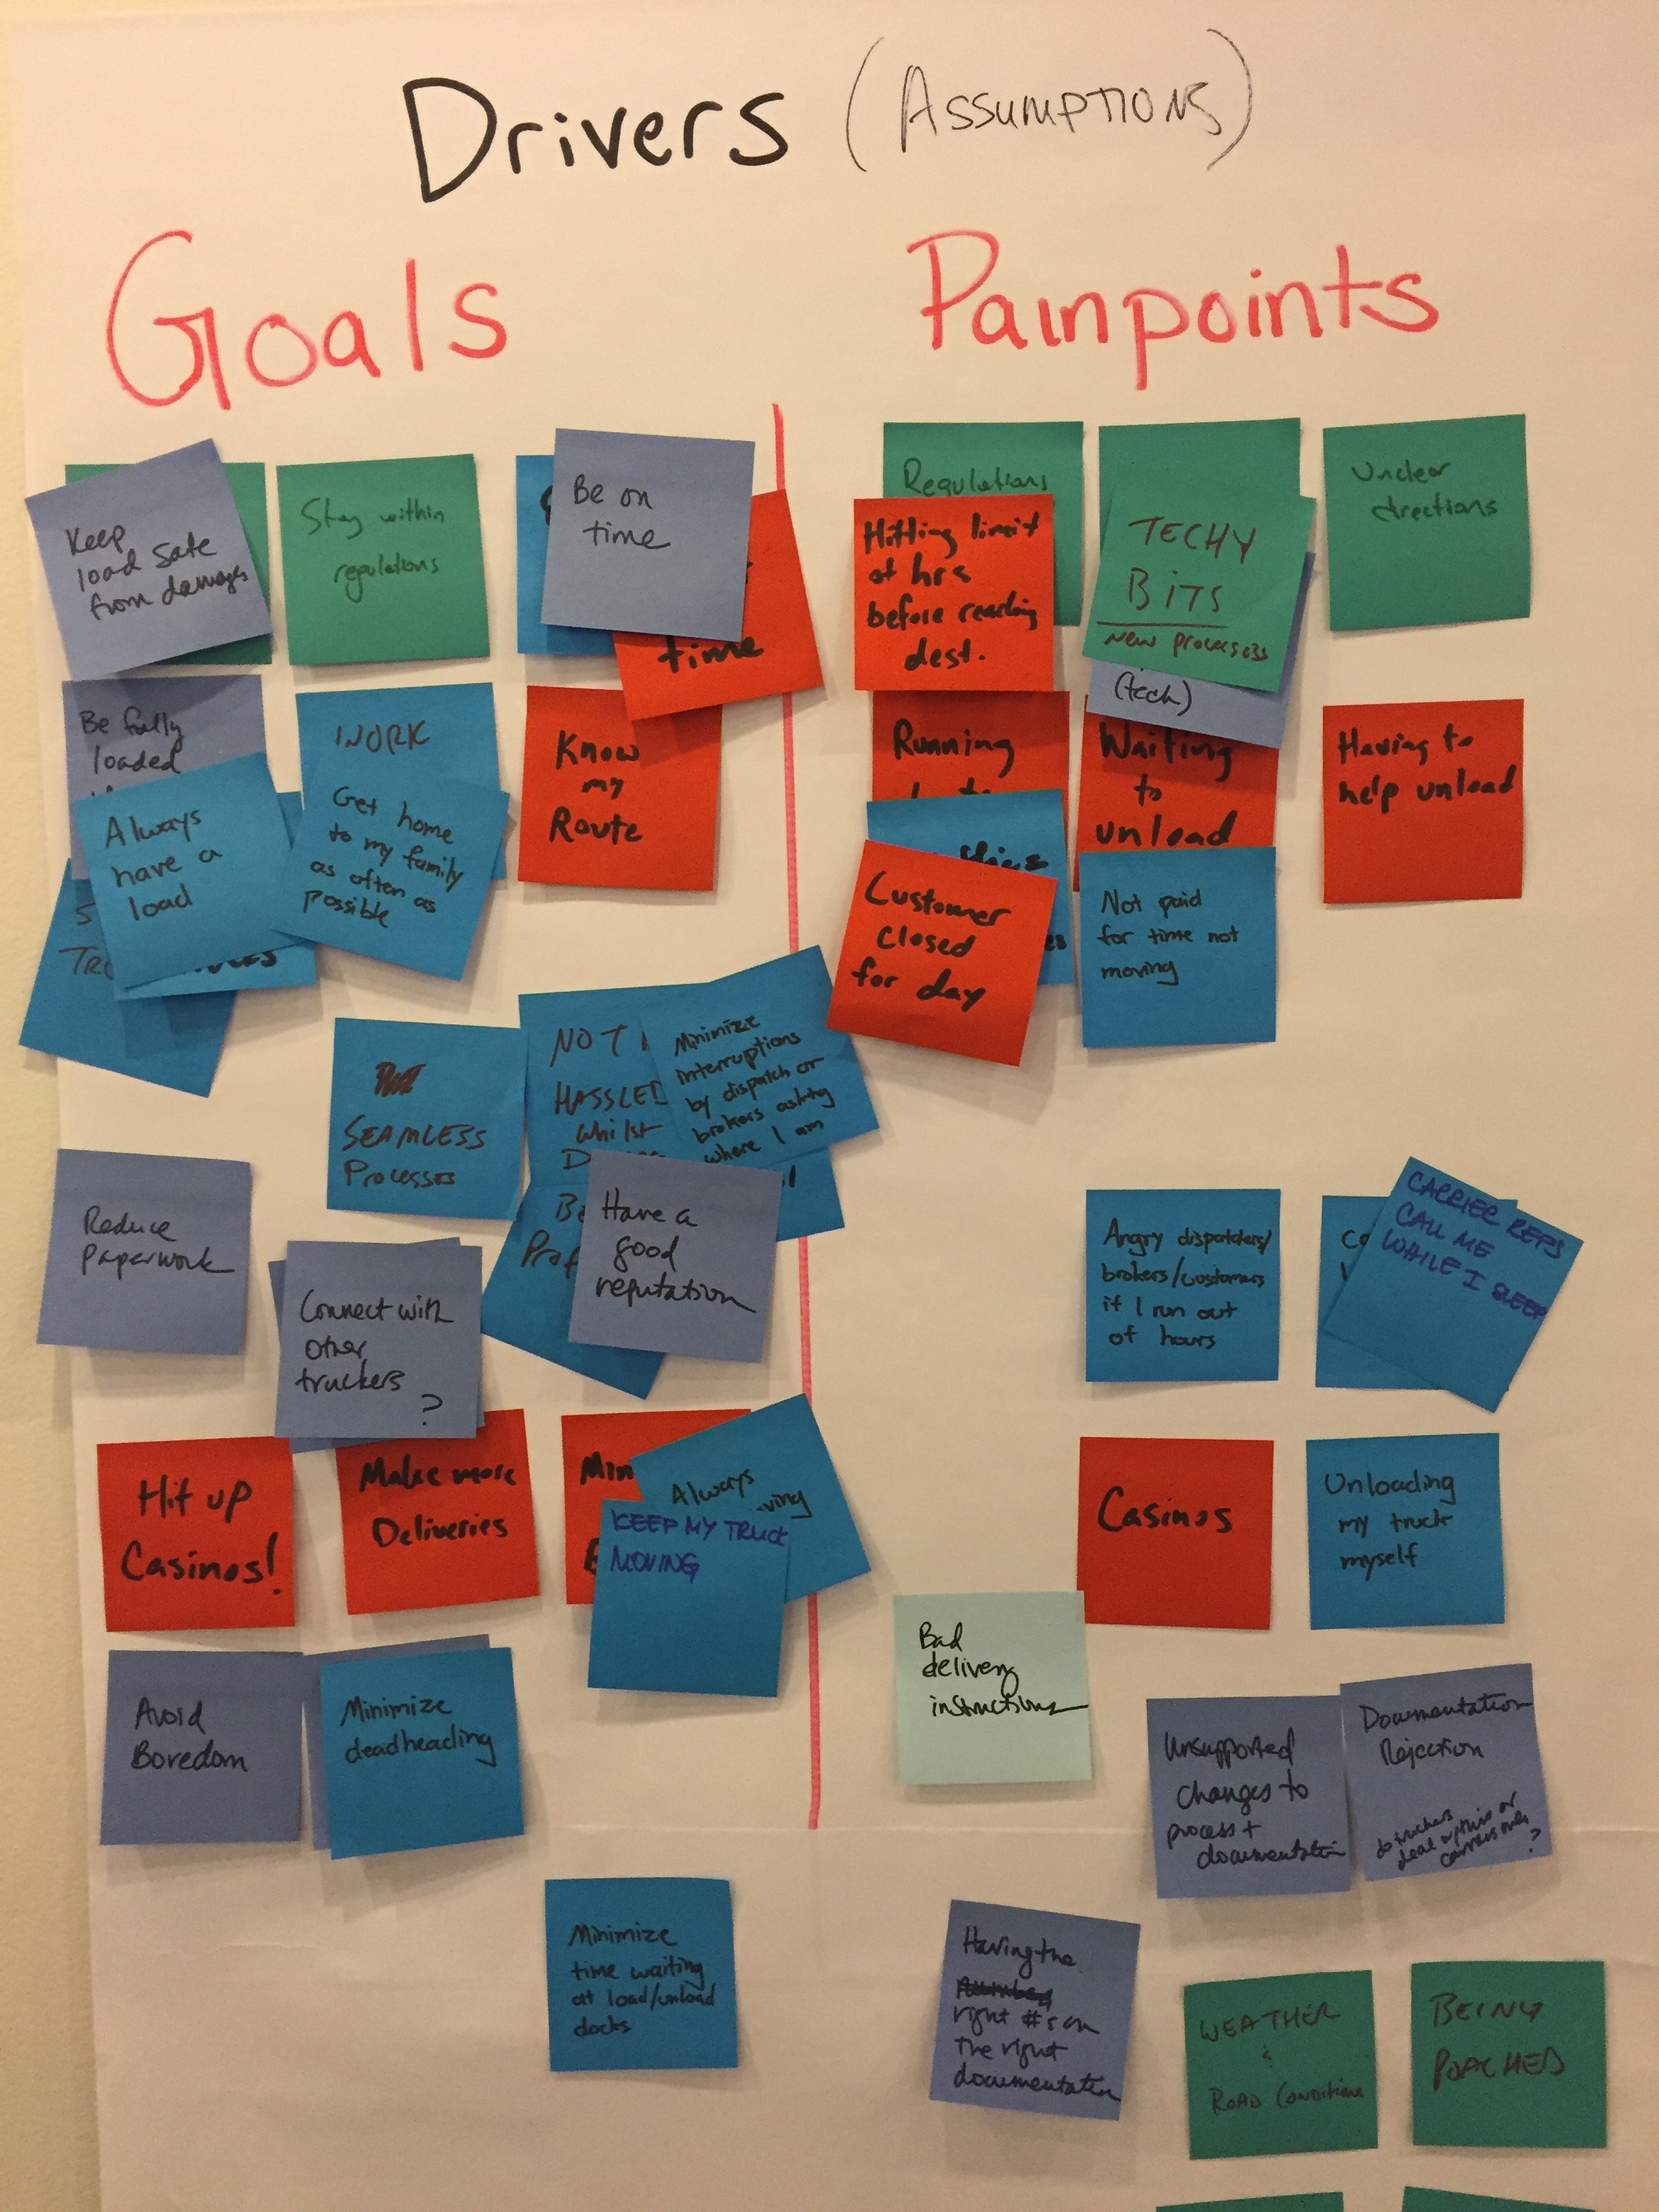 Drivers (ASSUMPTIONS)
Goals
Painpoints
Keep
load safe
from damages
Stay within
regulations
Be on
time
time
Be fully
loaded
Always
have a
load
WORK
Get home
to my family
as often as
possible
Know
my
Route
SEAMLESS
Processes
NOT
HASSLED
whilst
Minimize
interruptions
by dispatch or
brokers asking
where I am
Reduce
paperwork
Have a
good
reputation
Connect with
other
truckers
?
Hit up
Casinos!
Make more
Deliveries
Always
KEEP MY TRUCK
MOVING
Avoid
Boredom
Minimize
deadheading
Minimize
time waiting
at load/unload
docks
Regulations
Hitting limit
of hrs
before reaching
dest.
TECHY
BITS
NEW PROCESSES
(tech)
Unclear
directions
Running
Waiting
to
unload
Having to
help unload
Customer
Closed
for day
Not paid
for time not
moving
Angry dispatchers/
brokers/customers
if I run out
of hours
CARRIER REPS
CALL ME
WHILE I SLEEP
Casinos
Unloading
my truck
myself
Bad
delivery
instructions
Unsupported
changes to
process +
documentation
Documentation
Rejection
do truckers
deal w/this or
carriers only
?
Having the
right #s on
the right
documentation
WEATHER
&
ROAD CONDITIONS
BEING
POACHED